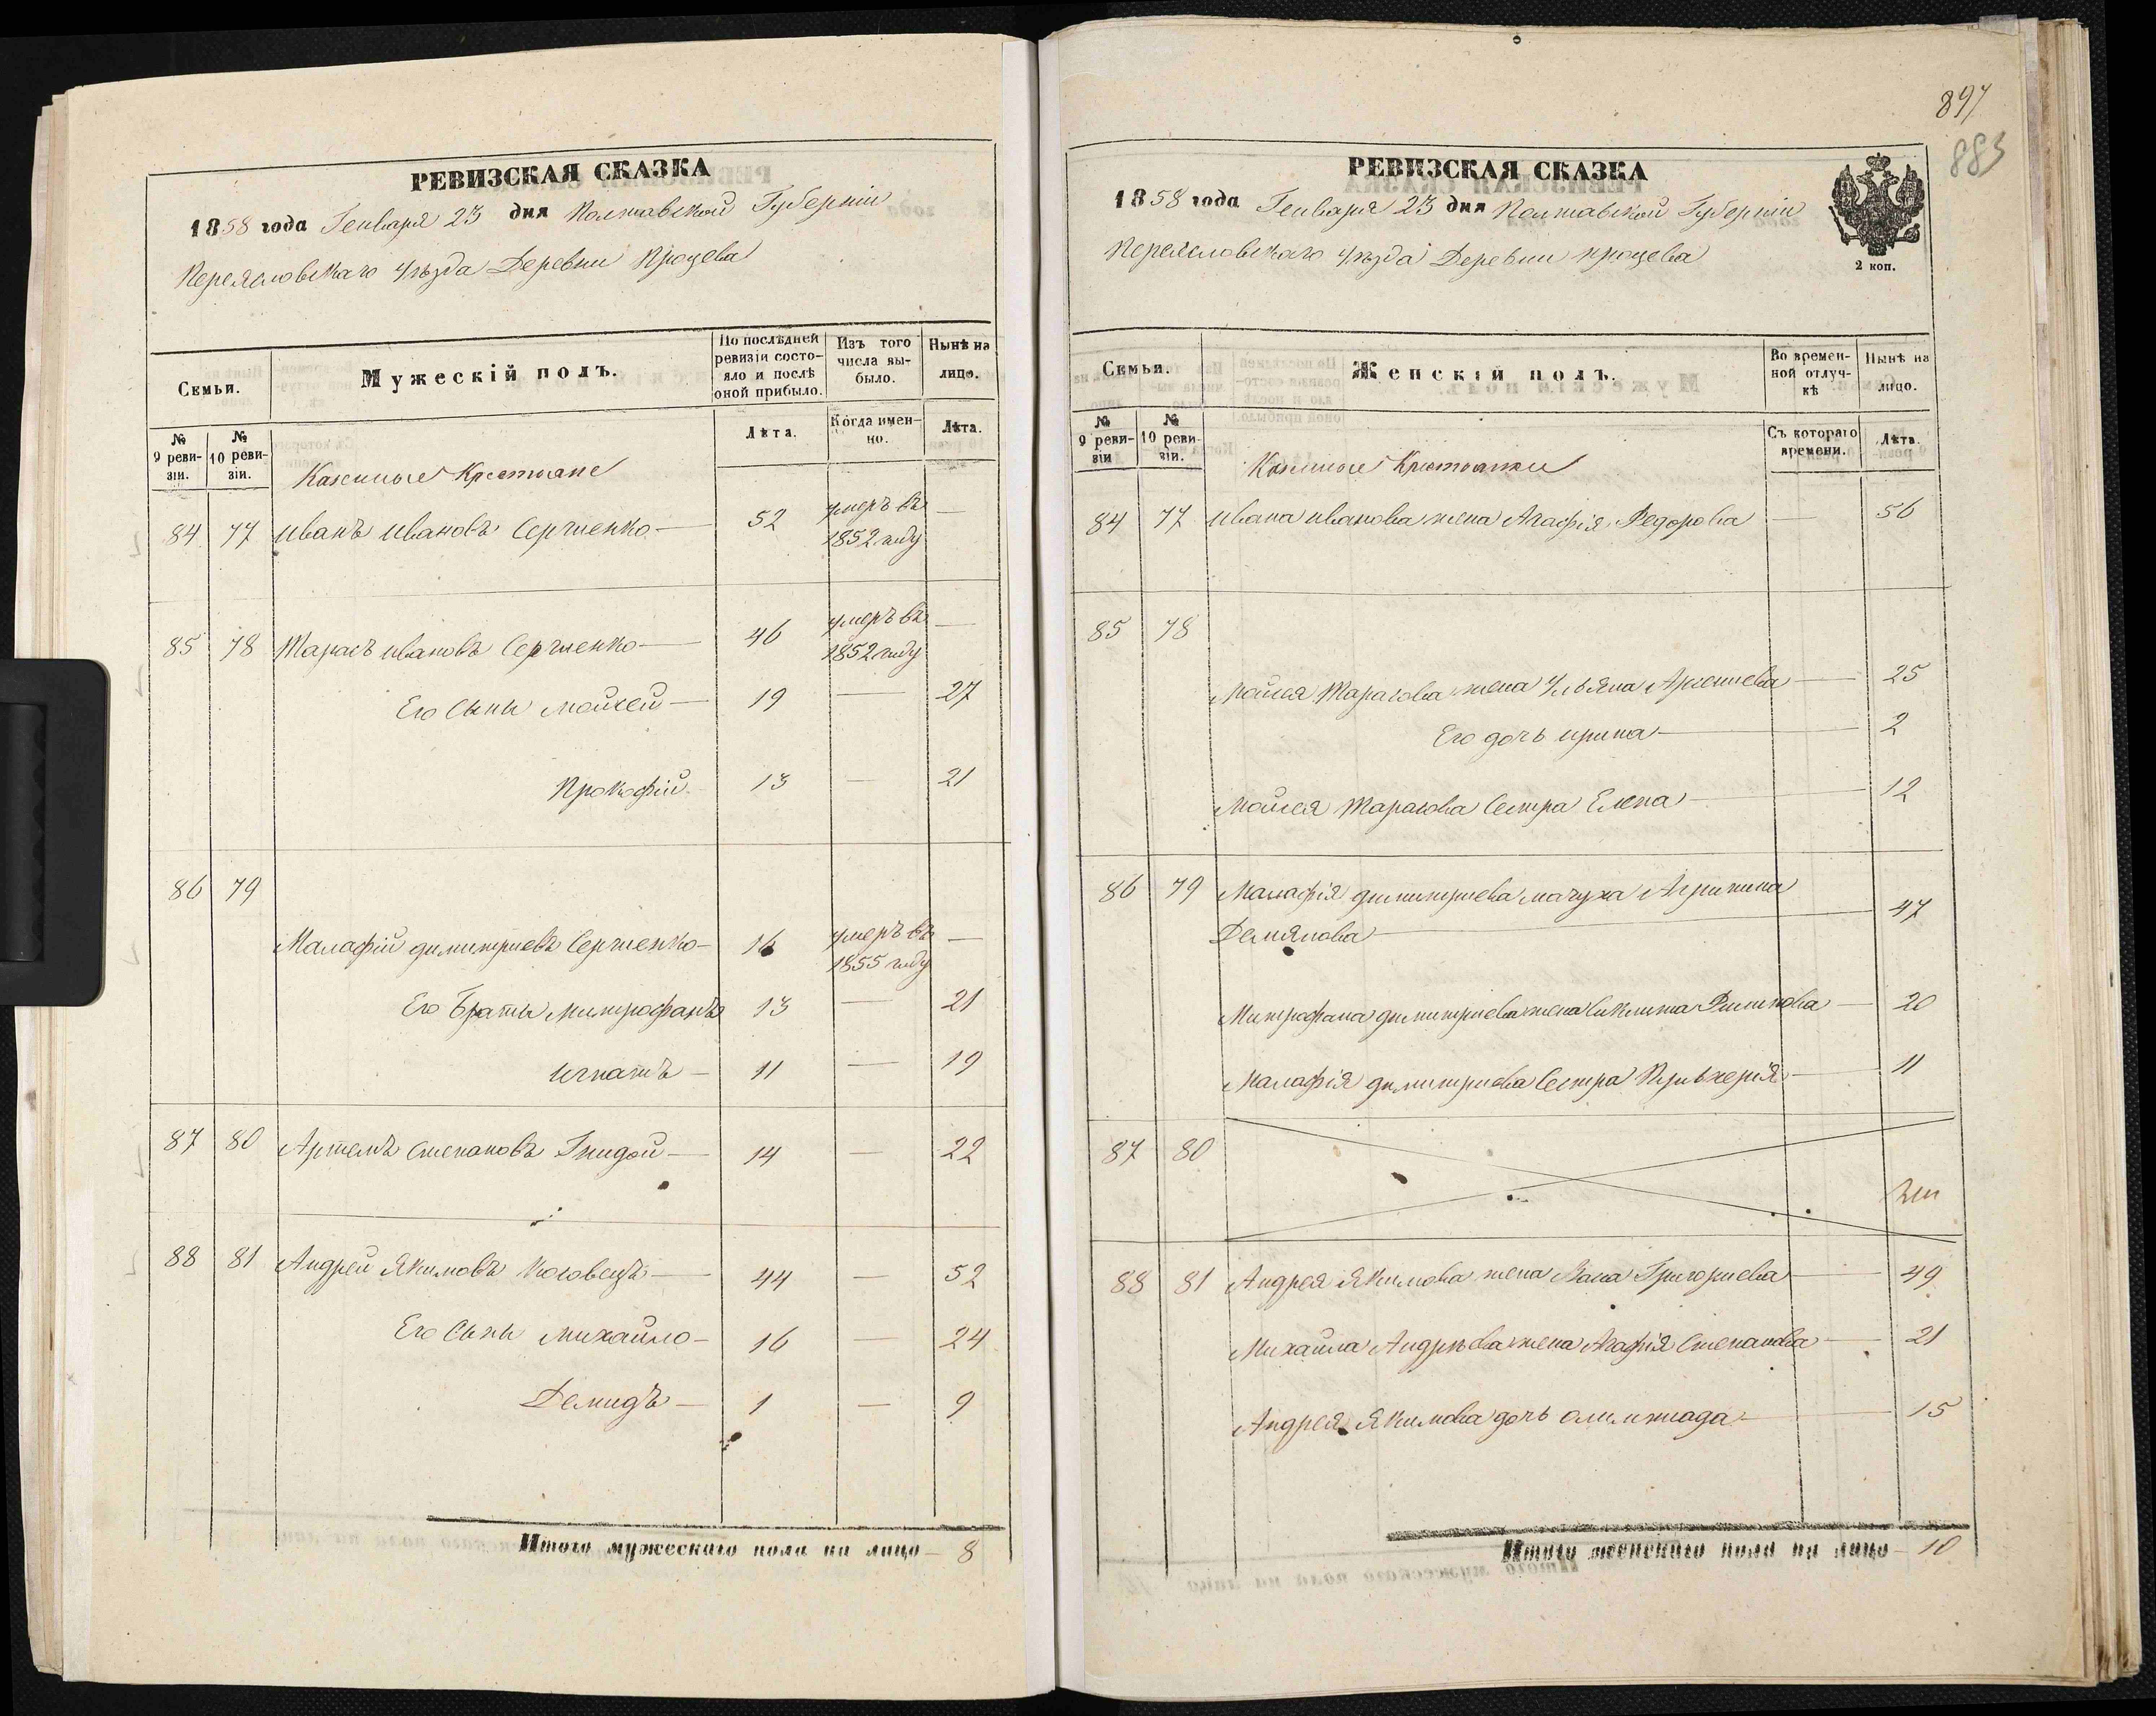 РЕВИЗСКАЯ СКАЗКА
1858 года Генваря 23 дня Полтавской Губерніи
Переясловскаго Уѣзда Деревни Процева
Семьи.
Мужескій полъ.
По послѣдней ревизіи состояло и послѣ оной прибыло.
Изъ того числа выбыло.
Нынѣ на лицо.
№ 9 ревизіи.
№ 10 ревизіи.
Лѣта.
Когда именно.
Лѣта.
Казенные Крестьяне
84 77 Иванъ Ивановъ Сергіенко — 52 умеръ въ 1852 году —
85 78 Тарасъ Ивановъ Сергіенко — 46 умеръ въ 1852 году —
Его Сыны Мойсей — 19 — 27
Прокофій 13 — 21
86 79
Малафій Димитриевъ Сергіенко — 16 умеръ въ 1855 году —
Его Браты Митрофанъ 13 — 21
Игнатъ — 11 — 19
87 80 Артемъ Степановъ — 14 — 22
88 81 Андрей Якимовъ — 44 — 52
Его Сыны Михайло — 16 — 24
Демидъ — 1 — 9
Итого мужескаго пола на лицо — 8
897
883
РЕВИЗСКАЯ СКАЗКА
2 коп.
1858 года Генваря 23 дня Полтавской Губерніи
Переясловскаго Уѣзда Деревни Процева
Семьи.
Женскій полъ.
Во временной отлучкѣ
Нынѣ на лицо.
№ 9 ревизіи
№ 10 ревизіи.
Съ котораго времени.
Лѣта.
Казенные Крестьянки
84 77 Ивана Иванова жена Агафія Федорова — 56
85 78
Мойсея Тарасова жена Ульяна — 25
Его дочь Ирина — 2
Мойсея Тарасова Сестра Елена — 12
86 79 Малафія Димитриева мачуха Агрипина
Демянова — 47
Митрофана Димитриева жена Филипова — 20
Малафія Димитриева Сестра Пульхерія — 11
87 80
88 81 Андрея Якимова жена Григориева — 49
Михайла Андрѣева жена Агафія Степанова — 21
Андрея Якимова дочь Олимпиада — 15
Итого женскаго пола на лицо — 10